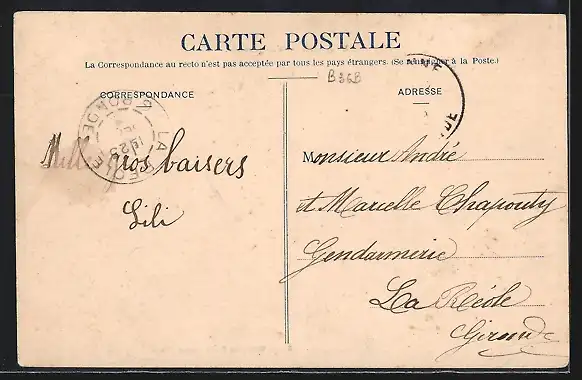 CARTE POSTALE
La Correspondance au recto n'est pas acceptée par tous les pays étrangers. (Se renseigner à la Poste.)
B36B
CORRESPONDANCE
ADRESSE
LA REOLE
Mille gros baisers
Lili
Monsieur André
et Marcelle Chapouty
Gendarmerie
La Réole
Gironde